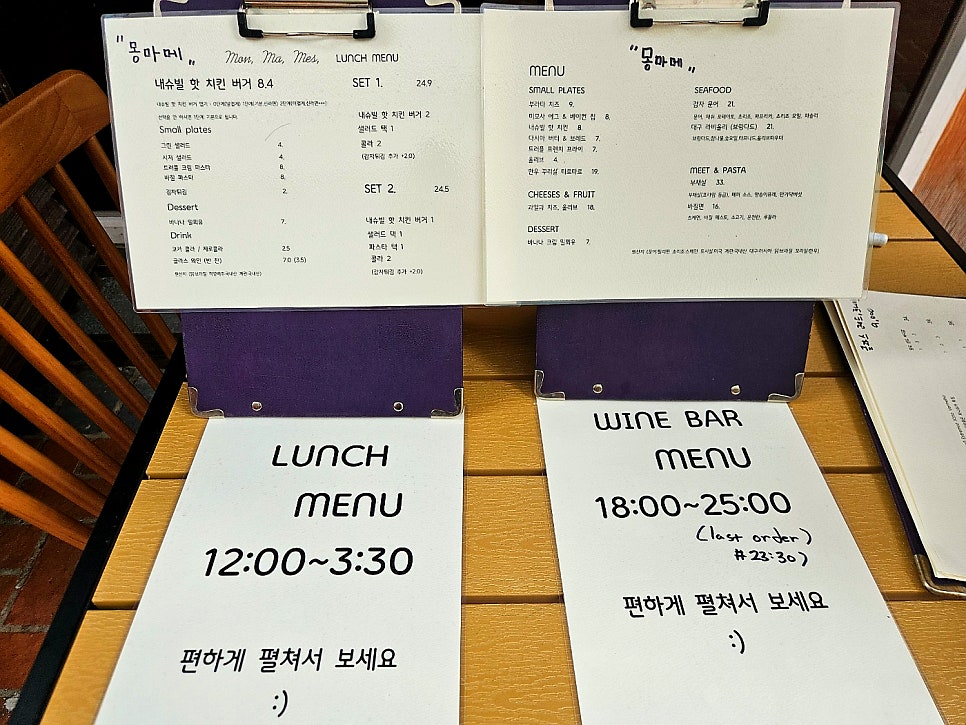 "몽마메"
Mon, Ma, Mes, LUNCH MENU
내슈빌 핫 치킨 버거 8.4
선택을 안 하시면 1단계 기본으로 됩니다.
Small plates
그린 샐러드 4.
시저 샐러드 4.
트러플 크림 파스타 8.
바질 파스타 8.
감자튀김 2.
Dessert
바나나 밀푀유 7.
Drink
코카 콜라 / 제로콜라 2.5
글라스 와인 (반 잔) 7.0 (3.5)
SET 1. 24.9
내슈빌 핫 치킨 버거 2
샐러드 택 1
콜라 2
(감자튀김 추가 +2.0)
SET 2. 24.5
내슈빌 핫 치킨 버거 1
샐러드 택 1
파스타 택 1
콜라 2
(감자튀김 추가 +2.0)
"몽마메"
MENU
SMALL PLATES
부라타 치즈 9.
미모사 에그 & 베이컨 칩 8.
내슈빌 치킨 8.
다시마 버터 & 브레드 7.
트러플 프렌치 프라이 7.
올리브 4.
한우 꾸리살 타르타르 19.
CHEESES & FRUIT
과일과 치즈, 올리브 18.
DESSERT
바나나 크림 밀푀유 7.
SEAFOOD
감자 문어 21.
대구 라비올리 (브랑다드) 21.
MEET & PASTA
부채살 33.
바질면 16.
LUNCH
MENU
12:00~3:30
편하게 펼쳐서 보세요
:)
WINE BAR
MENU
18:00~25:00
(last order)
#23:30)
편하게 펼쳐서 보세요
:)